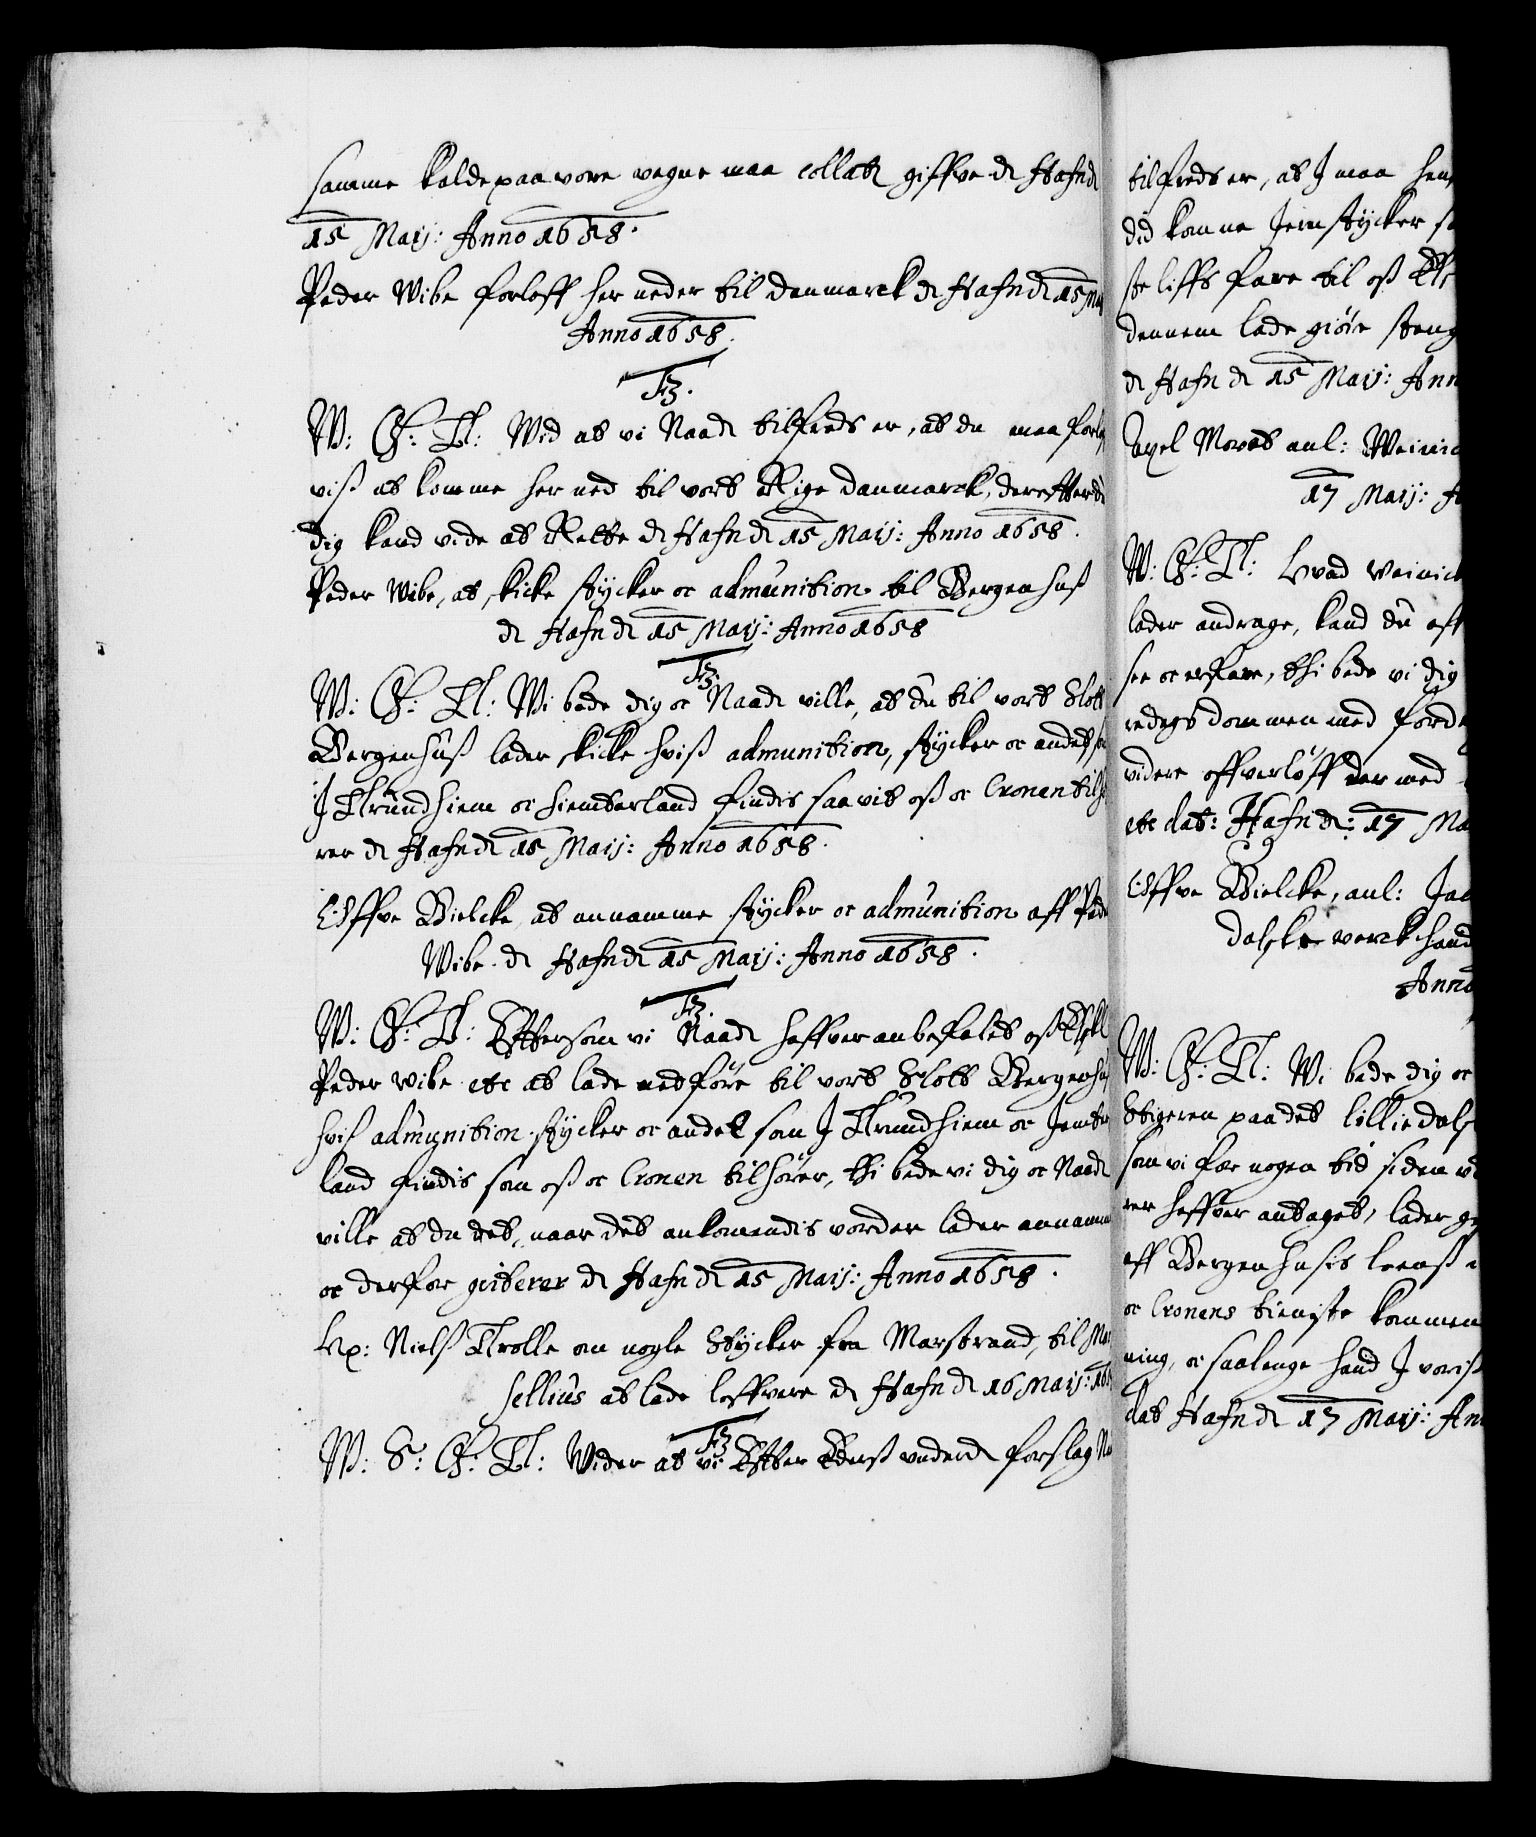 samme kald paa vore vegne maa collatz giffve dt Hafn d
15 Maij: Anno 1658.
Peder Wibe forloff her neder til Danmarck dt Hafn dt 15 Ma
Anno 1658.
F3.
W: G: T: Wid at vi Naadt tilfreds er, at du maa forlo
viß at komme her ned til vort Rige Danmarck, derefter du
dig kand vide at Rette dt Hafn dt 15 Maij: Anno 1658.
Peder Wibe, at skicke stycker oc admunition til Bergenhus
dt Hafn dt 15 Maij: Anno 1658
F3.
W: G: T: Wi bede dig oc Naadt ville, at du til vort Slott
Bergenhuß lader skicke hviß admunition, stycker oc andet so
J Trundhiem oc Hiemterland findis saavit oß oc Cronen tilhø
rer dt Hafn dt 15 Maij: Anno 1658.
Offve Bielcke at annamme stycker oc admunition aff Ped
Wibe dt Hafn dt 15 Maij: Anno 1658.
F3.
W: G: T: Efftersom vi Naadt haffver anbefalet oß Elskel
Peder Wibe etc at lade nedføre til vort Slott Bergenhu
hviß admunition stycker oc andet som J Trundhiem oc Jemter
land findis som oß oc Cronen tilhører, thi bede vi dig oc Naadt
ville at du det, naar det ankomendis vorder lader annamm
oc derfor qviterer dt Hafn dt 15 Maij: Anno 1658.
Hr: Nielß Trolle om nogle Stycker fra Marstrand, til Mar
sellius at lade leffvere dt Hafn dt 16 Maij: 165
F3
W: S: G: T: Wider at vi Effter Eders underd. forslag Na
tilfreds er, at J maa hen
did komne Jernstycker so
ste liffs fare til oß Eff
dennem lade giøre steng
dt Hafn dt 15 Maij: Ann
Axel Mowat anl: Weinic
17 Maij: A
W: G: T: Hvad Weinick
lader andrage, kand du aff
see oc erfare, thi bede vi dig
redags dommen med forde
videre offverløff der med
etc dat: Hafn dt: 17 Ma
Offve Bielcke, anl: Jac
dalske verck hand
Anno
W: G: T: Wi bede dig oc
Stigeren paa det lilliedals
som vi for nogen tid siden vd
rer haffver antaget, lader ge
aff Bergenhusis leenß
oc Cronens tieniste kommen
ning, oc saalenge hand J voris
dat Hafn dt 17 Maij: Ann